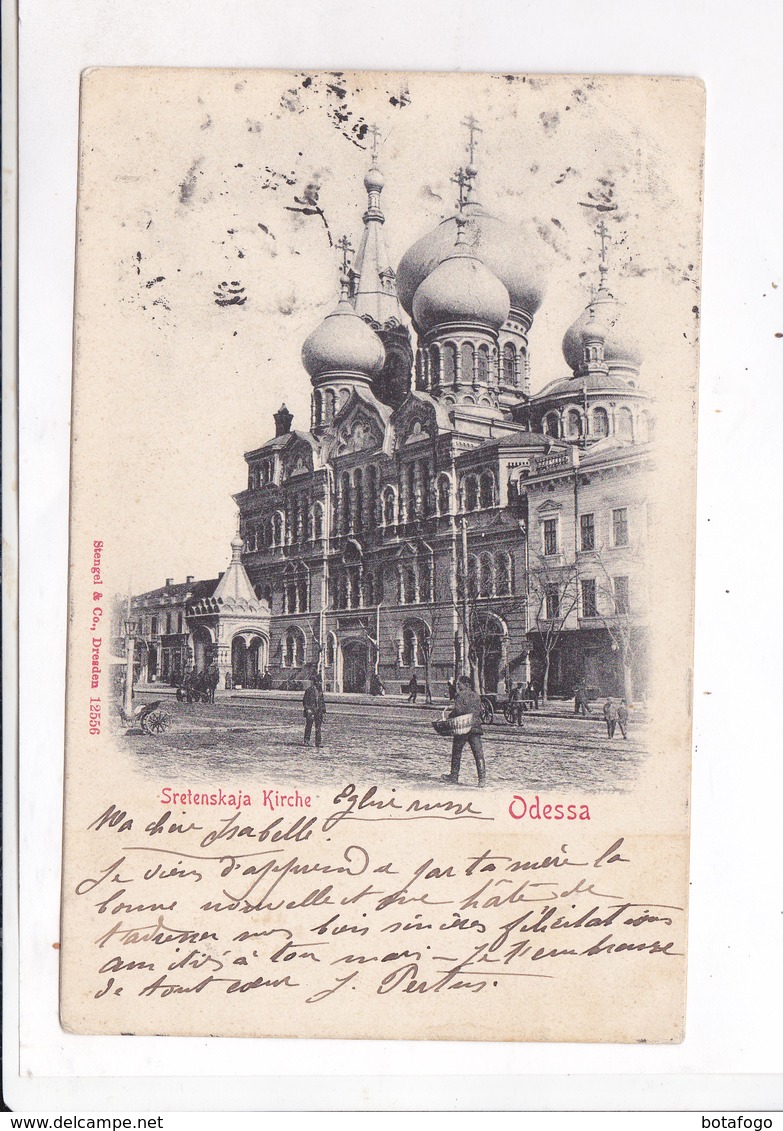 Stengel & Co., Dresden 12556
Sretenskaja Kirche
Eglise russe
Odessa
Ma chère Isabelle.
Je viens d'apprendre par ta mère la
bonne nouvelle et me hâte de
t'adresser mes bien sincères félicitations
amitiés à ton mari – Je t'embrasse
de tout cœur J.
botafogo